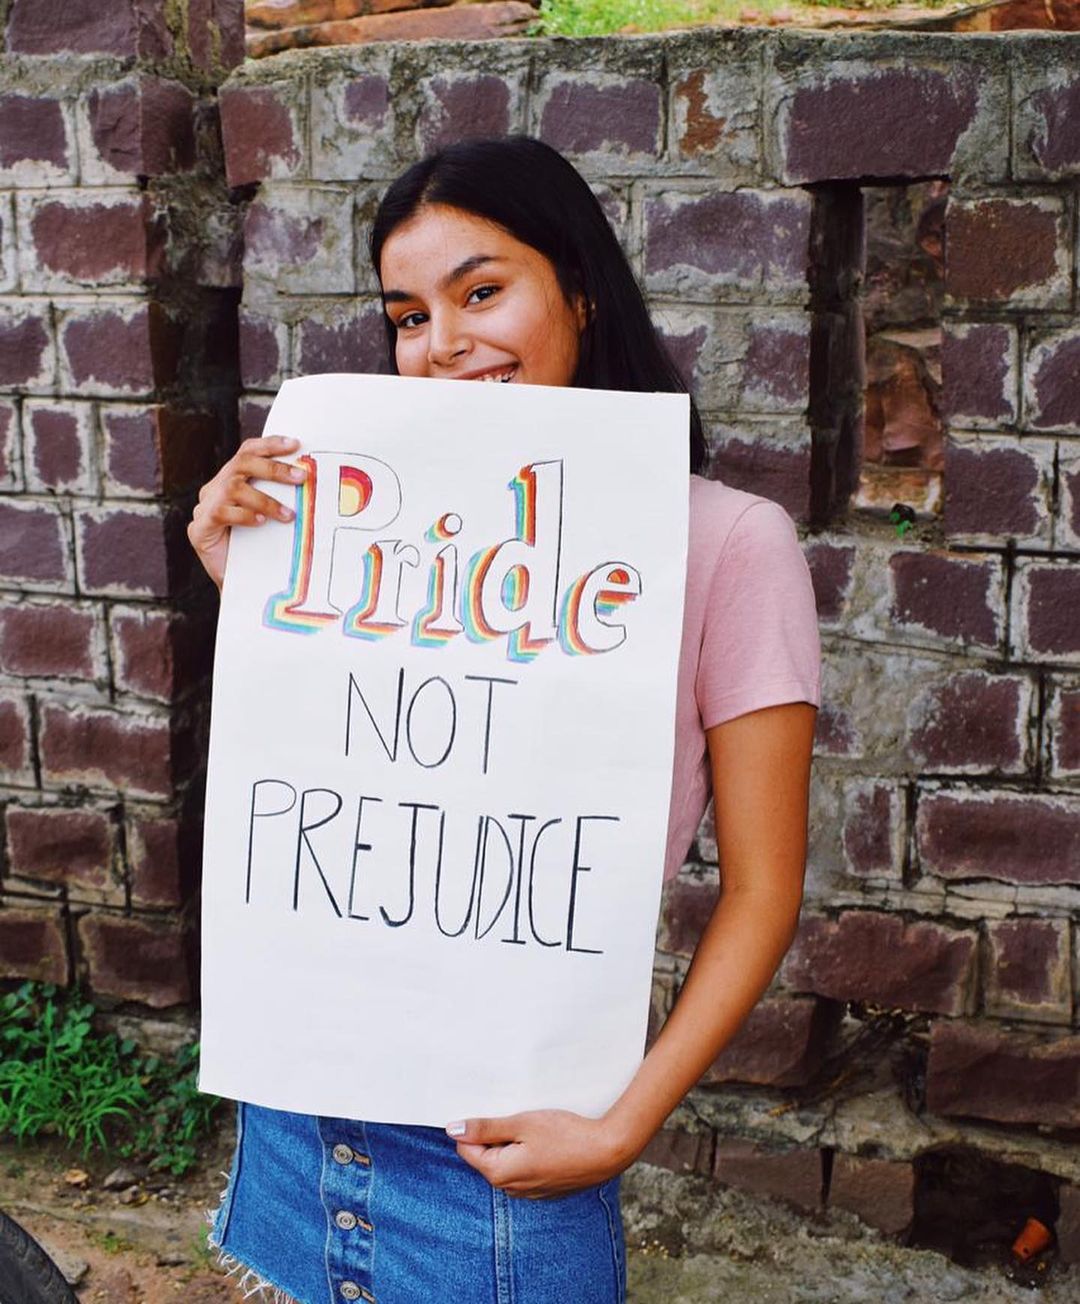 Pride
NOT
PREJUDICE